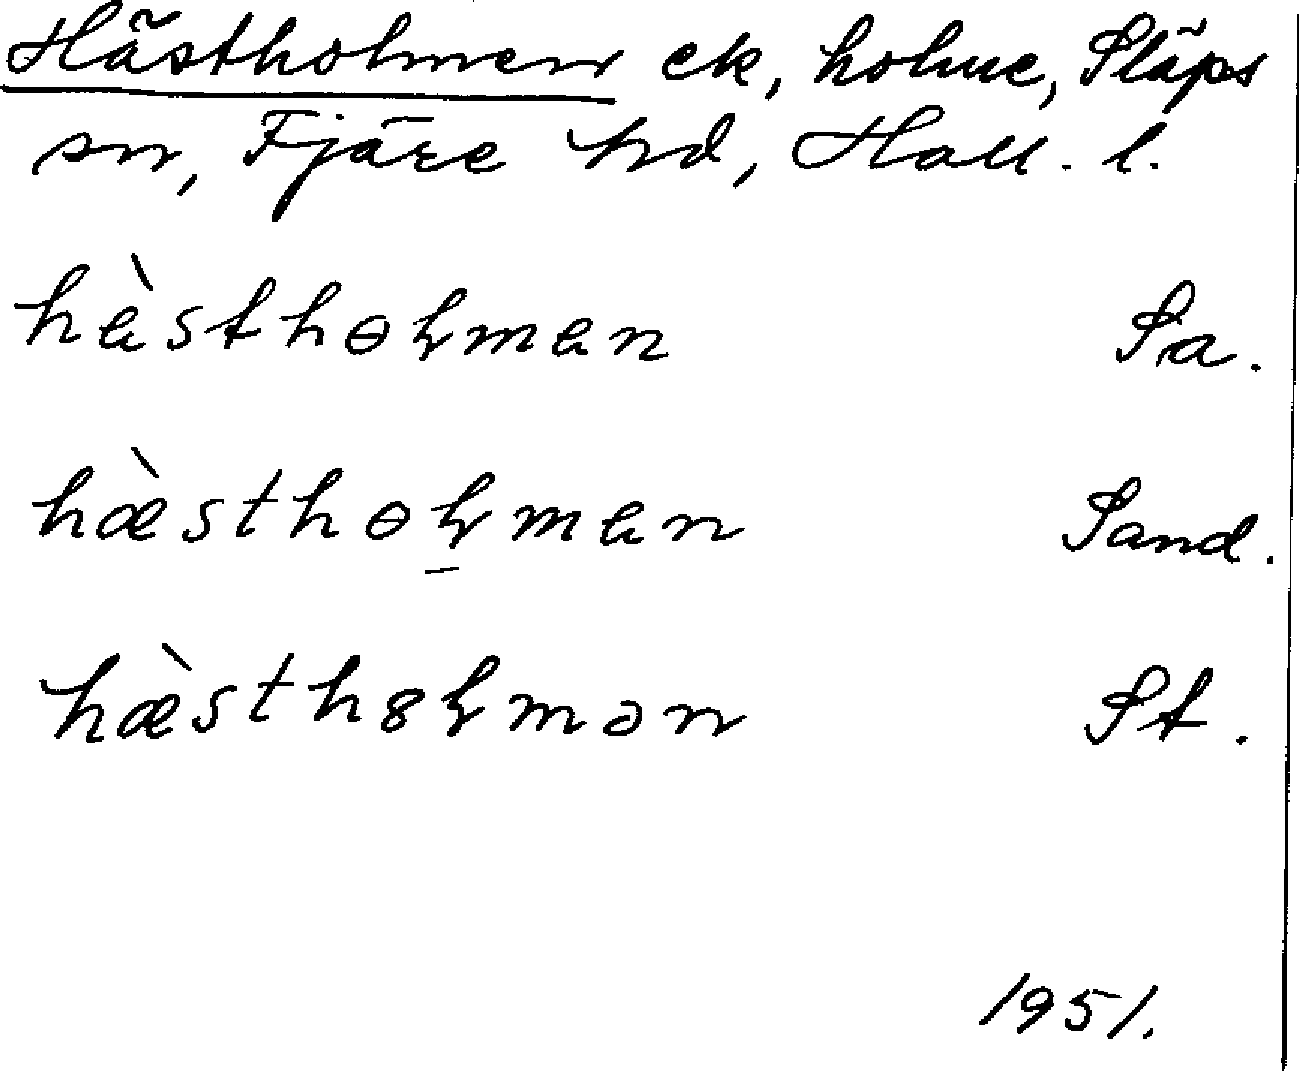 Hästholmen ek, holme, Släps
sn, Fjäre hd, Hall. l.
hàsthɵɫman Sa.
hæ̀sthɵɫman Sand.
hæ̀sth8ɫmən St.
1951.